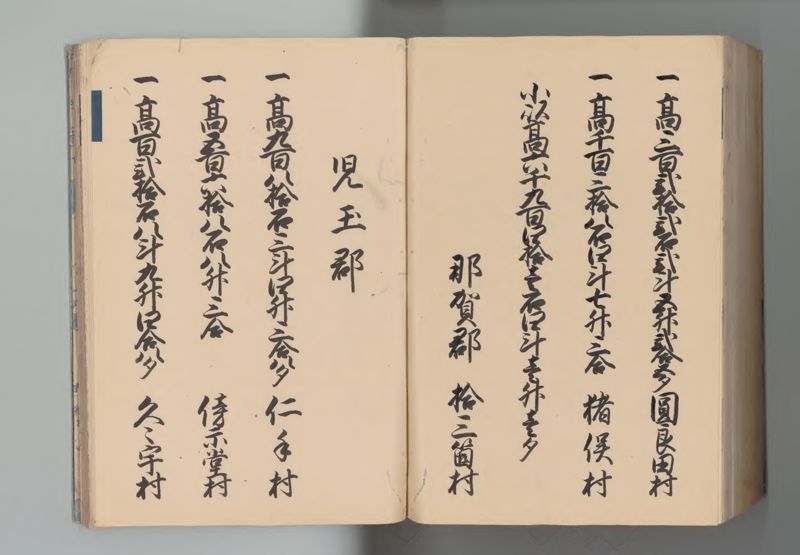 一高三百弐拾弐石弐斗五升弐合 圓良田村
一高千百三拾八石四斗七升三合 猪俣村
小以高六千九百四拾壱石四斗壱升壱夕
那賀郡 拾三箇村
児玉郡
一高九百八拾石三斗四升三合八夕 仁手村
一高五百六拾八石八升三合 傍示堂村
一高百弐拾石八斗九升四合八夕 久々宇村